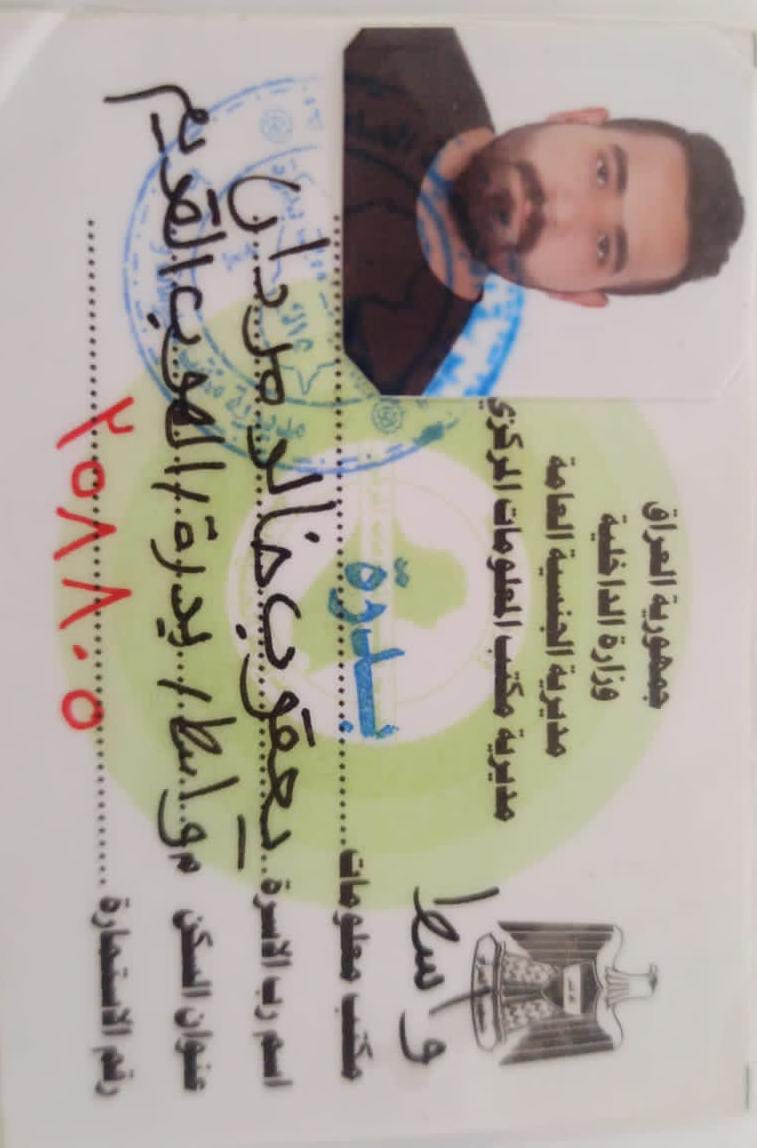 جمهورية العراق
وزارة الداخلية
مديرية الجنسية العامة
مديرية مكتب المعلومات المركزي
واسط
مكتب معلومات بدرة
اسم رب الاسرة يعقوب خالد مردان
عنوان السكن م واسط / بدرة / الهوب القديم
رقم الاستمارة ٢٥٨٨٠٥